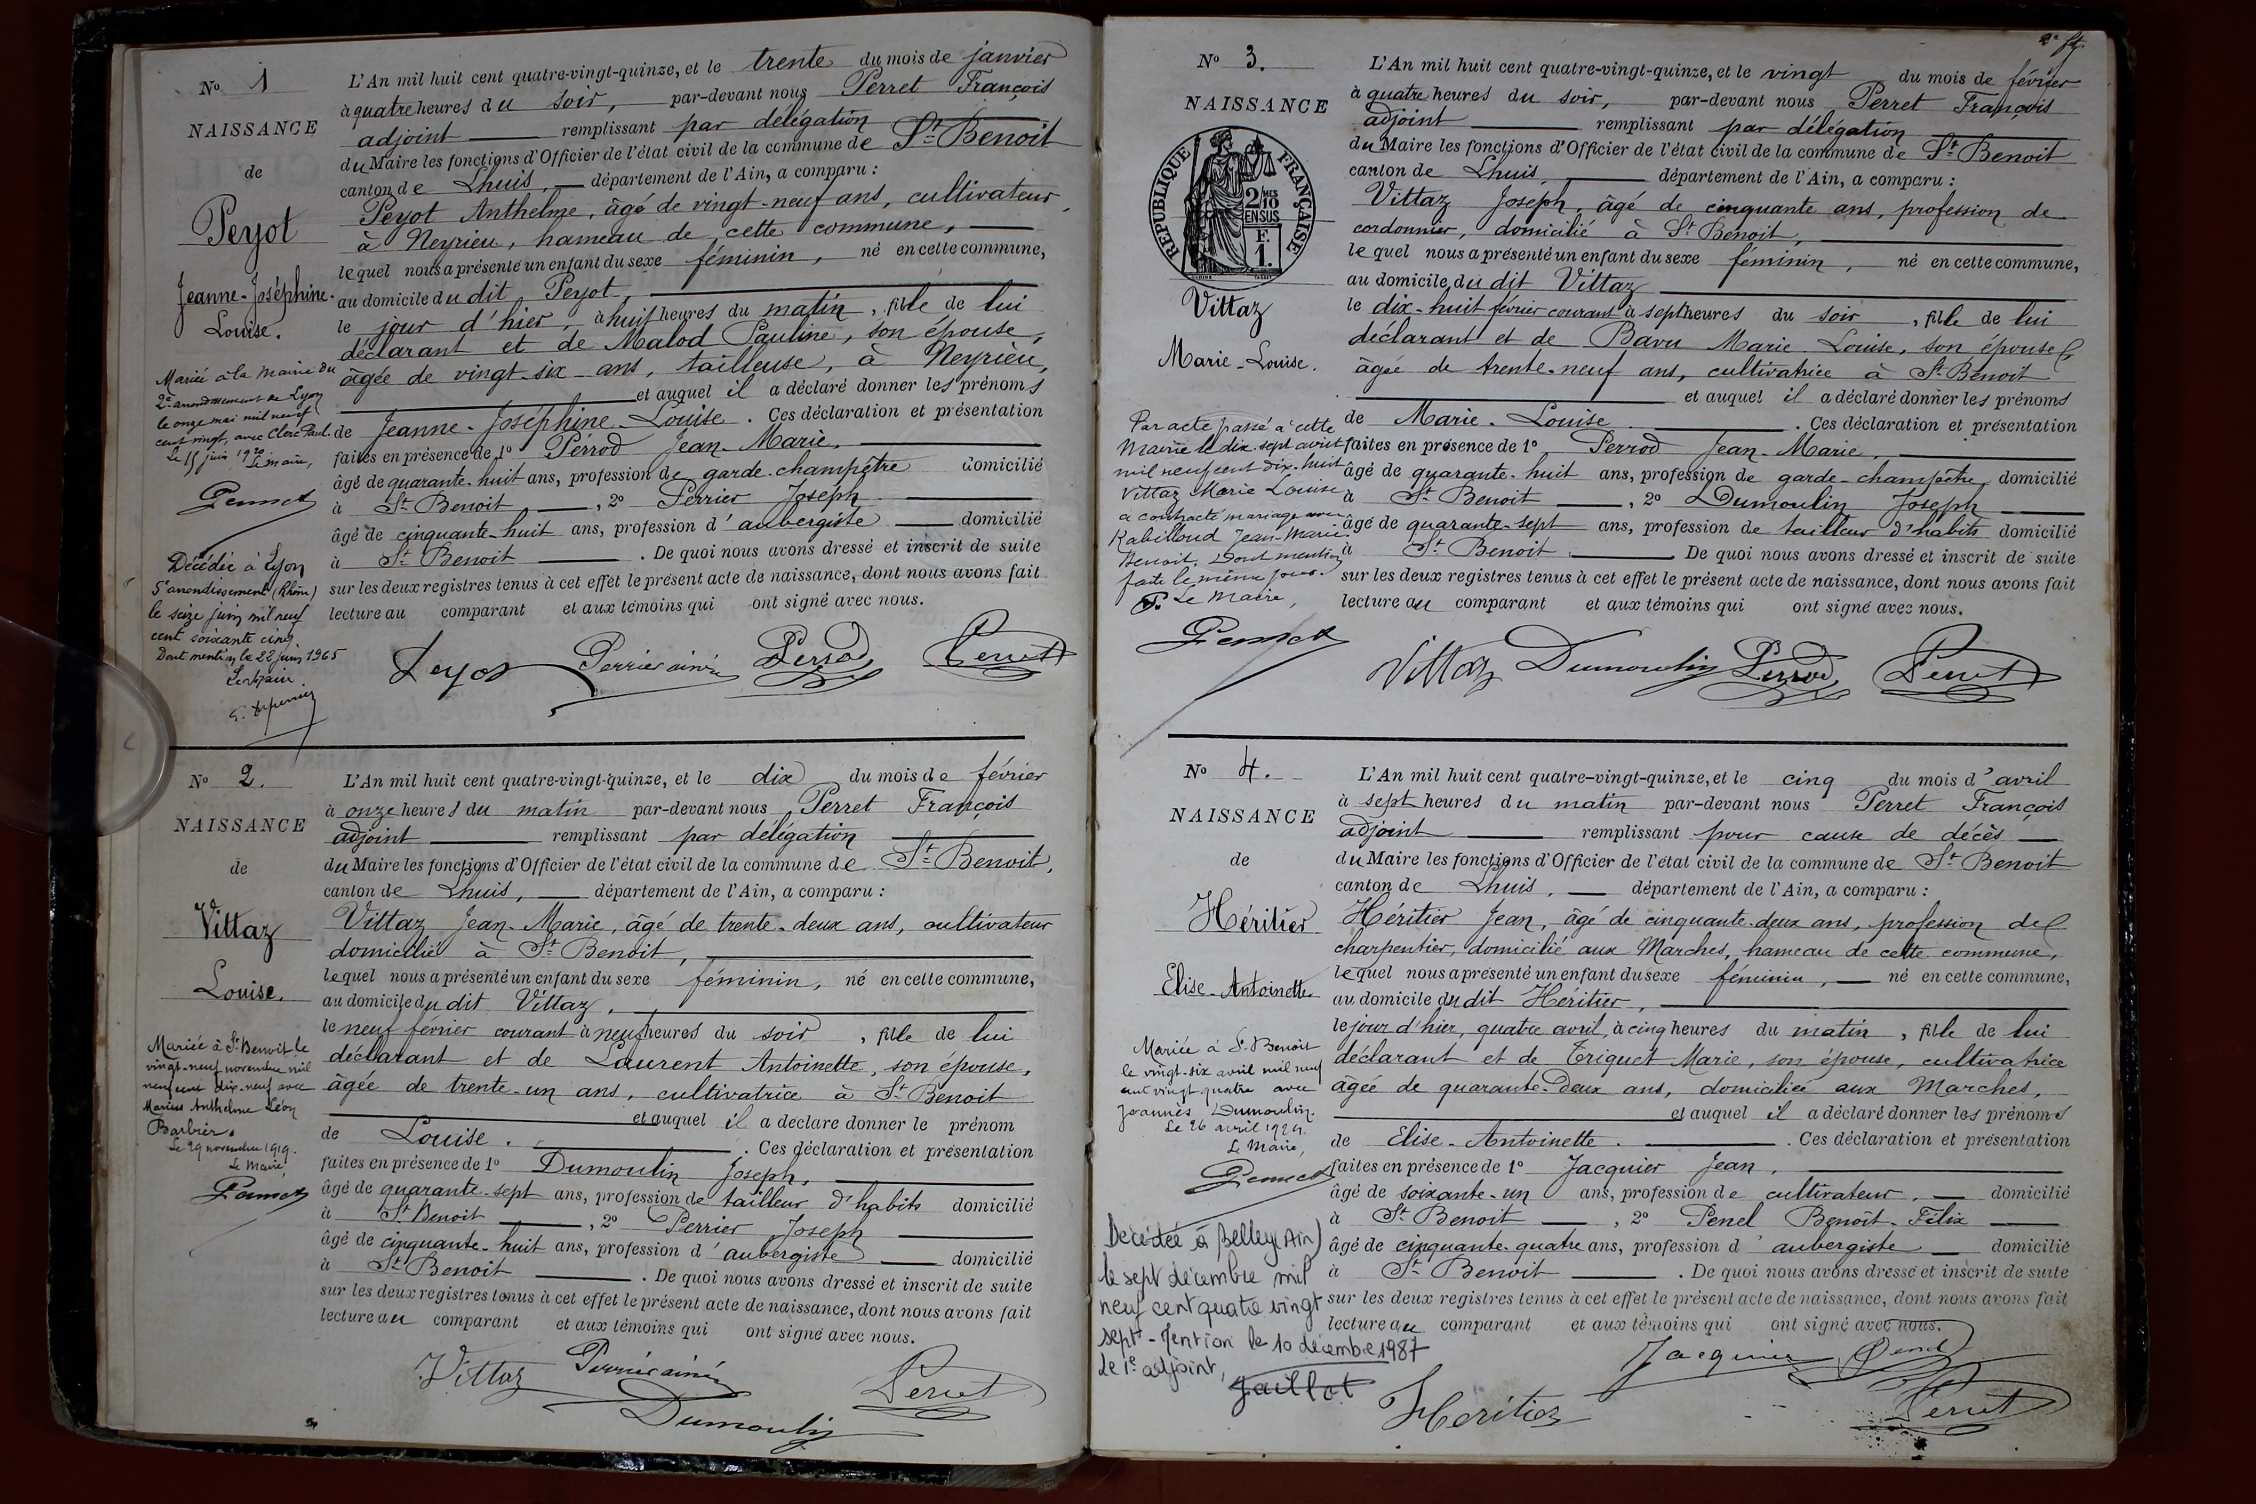 No 1
NAISSANCE
de
Peyot
Jeanne-Joséphine-
Louise.
Mariée à la mairie du
2e arrondissement de Lyon
le onze mai mil neuf
cent vingt, avec Clerc Paul.
Le 15 juin 1920
Le maire,
Décédée à Lyon
5e arrondissement (Rhône)
le seize juin mil neuf
cent soixante cinq
Dont mention le 22 juin 1965
Le Maire
L'An mil huit cent quatre-vingt-quinze, et le trente du mois de janvier
à quatre heures du soir, par-devant nous Perret François
adjoint remplissant par délégation
du Maire les fonctions d'Officier de l'état civil de la commune de St Benoit
canton de Lhuis, département de l'Ain, a comparu :
Peyot Anthelme, âgé de vingt-neuf ans, cultivateur,
à Neyrieu, hameau de cette commune,
lequel nous a présenté un enfant du sexe féminin, né en cette commune,
au domicile du dit Peyot,
le jour d'hier, à huit heures du matin, fille de lui
déclarant et de Malod Pauline, son épouse,
âgée de vingt-six ans, tailleuse, à Neyrieu,
et auquel il a déclaré donner les prénoms
de Jeanne-Joséphine-Louise. Ces déclaration et présentation
faites en présence de 1o Pérrod Jean-Marie,
âgé de quarante-huit ans, profession de garde-champêtre domicilié
à St Benoit, 2o Perrier Joseph
âgé de cinquante-huit ans, profession d'aubergiste domicilié
à St Benoit. De quoi nous avons dressé et inscrit de suite
sur les deux registres tenus à cet effet le présent acte de naissance, dont nous avons fait
lecture au comparant et aux témoins qui ont signé avec nous.
Peyot Perrier ainé Perrod Perret
No 2.
NAISSANCE
de
Vittaz
Louise.
Mariée à St Benoit le
vingt-neuf novembre mil
neuf cent dix-neuf avec
Marius Anthelme Léon
Barbier.
Le 29 novembre 1919.
Le Maire,
L'An mil huit cent quatre-vingt-quinze, et le dix du mois de février
à onze heures du matin par-devant nous Perret François
adjoint remplissant par délégation
du Maire les fonctions d'Officier de l'état civil de la commune de St Benoit,
canton de Lhuis, département de l'Ain, a comparu :
Vittaz Jean-Marie, âgé de trente-deux ans, cultivateur
domicilié à St Benoit,
lequel nous a présenté un enfant du sexe féminin, né en cette commune,
au domicile du dit Vittaz,
le neuf février courant à neuf heures du soir, fille de lui
déclarant et de Laurent Antoinette, son épouse,
âgée de trente-un ans, cultivatrice à St Benoit
et auquel il a déclaré donner le prénom
de Louise. Ces déclaration et présentation
faites en présence de 1o Dumoulin Joseph,
âgé de quarante-sept ans, profession de tailleur d'habits domicilié
à St Benoit, 2o Perrier Joseph
âgé de cinquante-huit ans, profession d'aubergiste domicilié
à St Benoit. De quoi nous avons dressé et inscrit de suite
sur les deux registres tenus à cet effet le présent acte de naissance, dont nous avons fait
lecture au comparant et aux témoins qui ont signé avec nous.
Vittaz Perrier ainé Perret
Dumoulin
No 3.
NAISSANCE
RÉPUBLIQUE FRANÇAISE
2/10
EN SUS
F.
1.
Vittaz
Marie-Louise.
Par acte passé à cette
Mairie le dix-sept avril
mil neuf cent dix-huit
Vittaz Marie Louise
a contracté mariage avec
Rabilloud Jean-Marie
Benoit. Dont mention
faite le même jour.
Le Maire,
L'An mil huit cent quatre-vingt-quinze, et le vingt du mois de février
à quatre heures du soir, par-devant nous Perret François
adjoint remplissant par délégation
du Maire les fonctions d'Officier de l'état civil de la commune de St Benoit
canton de Lhuis, département de l'Ain, a comparu :
Vittaz Joseph, âgé de cinquante ans, profession de
cordonnier, domicilié à St Benoit,
lequel nous a présenté un enfant du sexe féminin, né en cette commune,
au domicile du dit Vittaz
le dix-huit février courant à sept heures du soir, fille de lui
déclarant et de Bavu Marie Louise, son épouse
âgée de trente-neuf ans, cultivatrice à St Benoit
et auquel il a déclaré donner les prénoms
de Marie-Louise. Ces déclaration et présentation
faites en présence de 1o Perrod Jean-Marie,
âgé de quarante-huit ans, profession de garde-champêtre domicilié
à St Benoit, 2o Dumoulin Joseph
âgé de quarante-sept ans, profession de tailleur d'habits domicilié
à St Benoit. De quoi nous avons dressé et inscrit de suite
sur les deux registres tenus à cet effet le présent acte de naissance, dont nous avons fait
lecture au comparant et aux témoins qui ont signé avec nous.
Vittaz Dumoulin Perrod Perret
No 4.
NAISSANCE
de
Héritier
Elise-Antoinette
Mariée à St Benoit
le vingt-six avril mil neuf
cent vingt quatre avec
Joannès Dumoulin.
Le 26 avril 1924.
Le Maire,
Décédée à Belley (Ain)
le sept décembre mil
neuf cent quatre vingt
sept - Mention le 10 décembre 1987
Le 1e adjoint,
Jaillot
L'An mil huit cent quatre-vingt-quinze, et le cinq du mois d'avril
à sept heures du matin par-devant nous Perret François
adjoint remplissant pour cause de décès
du Maire les fonctions d'Officier de l'état civil de la commune de St Benoit
canton de Lhuis, département de l'Ain, a comparu :
Héritier Jean, âgé de cinquante-deux ans, profession de
charpentier, domicilié aux Marches, hameau de cette commune,
lequel nous a présenté un enfant du sexe féminin, né en cette commune,
au domicile du dit Héritier,
le jour d'hier, quatre avril, à cinq heures du matin, fille de lui
déclarant et de Triquet Marie, son épouse, cultivatrice
âgée de quarante-deux ans, domiciliée aux Marches,
et auquel il a déclaré donner les prénoms
de Elise-Antoinette. Ces déclaration et présentation
faites en présence de 1o Jacquier Jean,
âgé de soixante-un ans, profession de cultivateur, domicilié
à St Benoit, 2o Penel Benoît-Félix
âgé de cinquante-quatre ans, profession d'aubergiste domicilié
à St Benoit. De quoi nous avons dressé et inscrit de suite
sur les deux registres tenus à cet effet le présent acte de naissance, dont nous avons fait
lecture au comparant et aux témoins qui ont signé avec nous.
Jacquier Penel
Héritier Perret